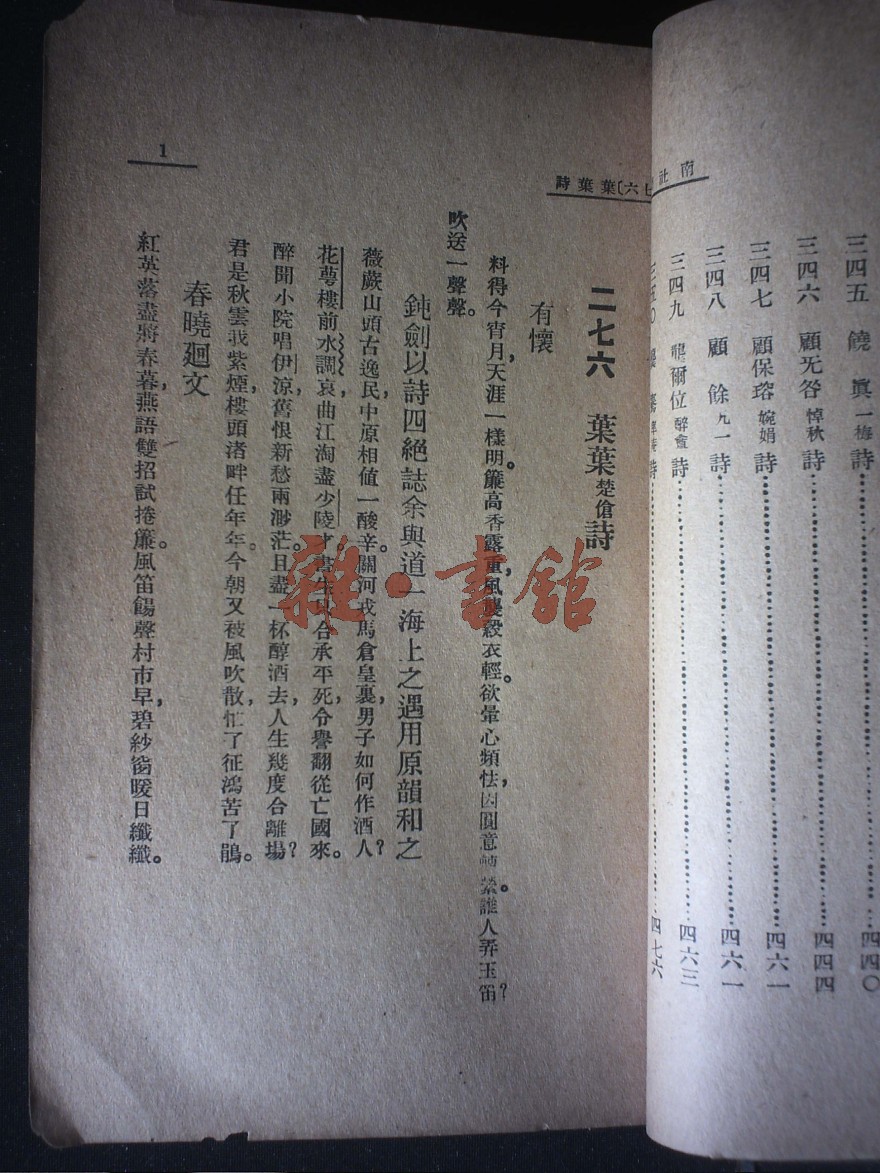 南社
三四五 饒 眞一梅詩……四四〇
三四六 顧旡咎悼秋詩……四四四
三四七 顧保瑢婉娟詩……四六一
三四八 顧 餘九一詩……四六一
三四九 龔爾位醉盦詩……四六三
三五〇 詩……四七六
七六〕葉葉詩
二七六 葉葉楚傖詩
有懷
料得今宵月，天涯一樣明。簾高香露重，風縠衣輕。欲暈心頻怯，因圓意轉縈。誰人弄玉笛？
吹送一聲聲。
鈍劍以詩四絕誌余與道一海上之遇用原韻和之
薇蕨山頭古逸民，中原相値一酸辛。關河戎馬倉皇裏，男子如何作酒人？
花萼樓前水調哀，曲江淘盡少陵才。書生合承平死，令譽翻從亡國來。
醉聞小院唱伊涼，舊恨新愁兩渺茫。且盡一杯醇酒去，人生幾度合離場？
君是秋雲我紫煙，樓頭渚畔任年年。今朝又被風吹散，忙了征鴻苦了鵑。
春曉廻文
紅英落盡將春暮，燕語雙招試捲簾。風笛餳聲村市早，碧紗窗暖日纖纖。
1
雜·書館